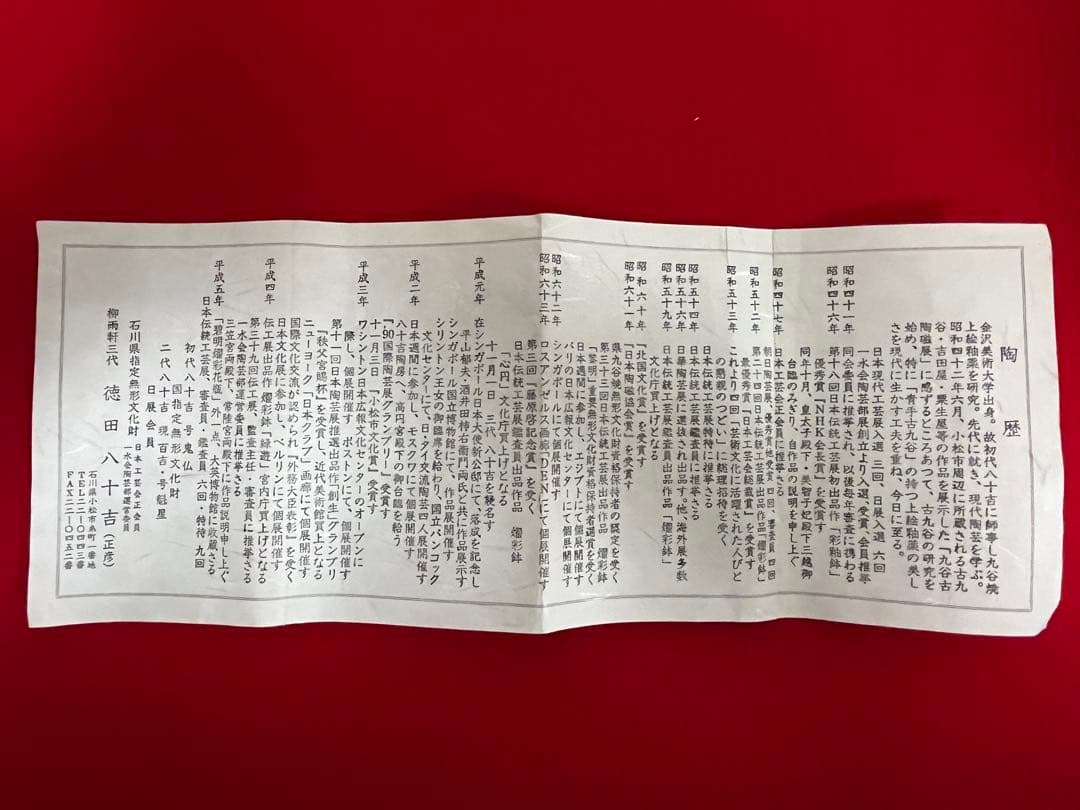 陶歴
金沢美術大学出身。故初代八十吉に師事し九谷焼
上絵釉薬を研究。先代に就き、現代陶芸を学ぶ。
昭和四十二年六月、小松市周辺に所蔵される古九
谷・吉田屋・粟生屋等の作品を展示した「九谷古
陶磁展」に感ずるところあって、古九谷の研究を
始め、特に「青手古九谷」の持つ上絵釉薬の美し
さを現代に生かす工夫を重ね、今日に至る。
日本現代工芸展入選 三回、日展入選 六回
昭和四十一年 一水会陶芸部展創立より入選、受賞、会員推挙
同会委員に推挙され、以後毎年審査に携わる
昭和四十六年 第十八回日本伝統工芸展初出品作「彩釉鉢」
優秀賞「NHK会長賞」を受賞す
同年十月、皇太子殿下・美智子妃殿下三越御
台臨のみぎり、自作の説明を申し上ぐ
昭和四十七年 日本工芸会正会員に推挙さる
昭和五十二年 第二十四回日本伝統工芸展出品作品「燿彩鉢」
最優秀賞「日本工芸会総裁賞」を受賞す
昭和五十三年 これより四回「芸術文化に活躍された人びと
の懇親のつどい」に総理招待を受く
文化庁買上げとなる
昭和五十四年 日本伝統工芸展特待に推挙さる
昭和五十五年 日本伝統工芸展鑑査員に推挙さる
昭和五十六年 日華陶芸展に選抜され出品す。他、海外展多数
日本伝統工芸展鑑査員出品作品「燿彩鉢」
昭和六十年 「北国文化賞」を受賞す
昭和六十一年 「日本陶磁協会賞」を受賞す
県九谷焼無形文化財資格保持者の認定を受く
第三十三回日本伝統工芸展出品作品 燿彩鉢
「黎明」重要無形文化財資格保持者選賞を受く
日本週間に参加し、エジプトにて個展開催す
パリの日本広報文化センターにて個展開催す
昭和六十二年 シンガポールにて個展開催す
昭和六十三年 ロスアンゼルス画廊「DEN」にて個展開催す
第三回「藤原啓記念賞」を受く
日本伝統工芸展鑑査員出品作品 燿彩鉢
「石畳」文化庁買上げとなる
十一月一日 三代八十吉を襲名す
平成元年 在シンガポール日本大使新公邸にて、落成を記念し
平山郁夫・酒井田柿右衛門両氏と共に作品展示す
シンガポール国立博物館にて、作品展開催す
シリントン王女の御臨席を給わり、国立バンコック
文化センターにて、日・タイ交流陶芸四人展開催す
日本週間に参加し、モスクワにて個展開催す
平成二年 八十吉陶房へ、高円宮殿下の御台臨を給う
「'90国際陶芸展グランプリー」受賞す
十一月三日「小松市文化賞」受賞す
平成三年 ワシントン日本広報文化センターのオープンに
際し、個展開催す、ボストンにて、個展開催す
第十一回日本陶芸展推選出品作「創生」グランプリ
「秩父宮賜杯」を受賞し、近代美術館買上となる
ニューヨーク「日本クラブ」画廊にて個展開催す
国際文化交流が認められ『外務大臣表彰』を受く
平成四年 日本文化展に参加し、ベルリンにて個展開催す
伝工展出品作 燿彩鉢「緑遊」宮内庁買上げとなる
第三十九回伝工展、監査主任・審査員に推挙さる
一水会陶芸部運営委員に推挙さる
三笠宮両殿下、常陸宮両殿下に作品説明申し上ぐ
平成五年 「碧明燿彩花瓶」外一点、大英博物館に収蔵さる
日本伝統工芸展、審査員・鑑査員 六回・特待 九回
初代八十吉 号鬼仏
国指定無形文化財
二代八十吉 現百吉・号魁星
日展会員
石川県指定無形文化財
日本工芸会正会員
一水会陶芸部運営委員
柳雨軒三代 徳田八十吉(正彦)
石川県小松市糸町一番地
TEL二二-〇〇四三番
FAX二二-〇〇四五二番